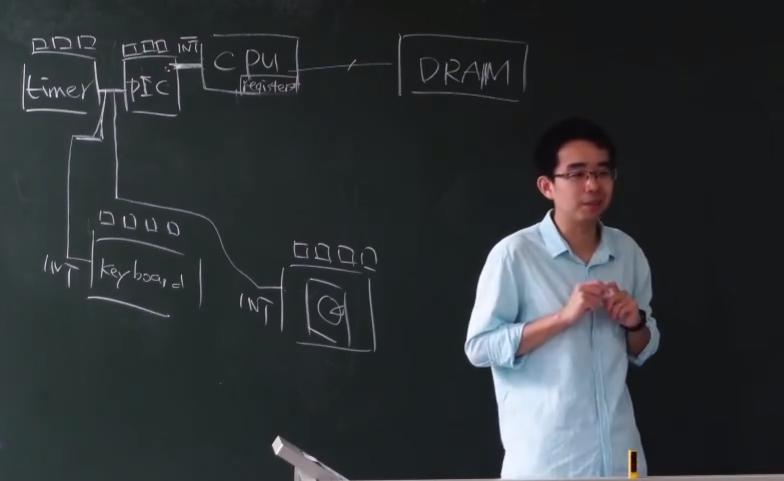 timer
PIC
INT
CPU
registers
DRAM
INT
keyboard
INT